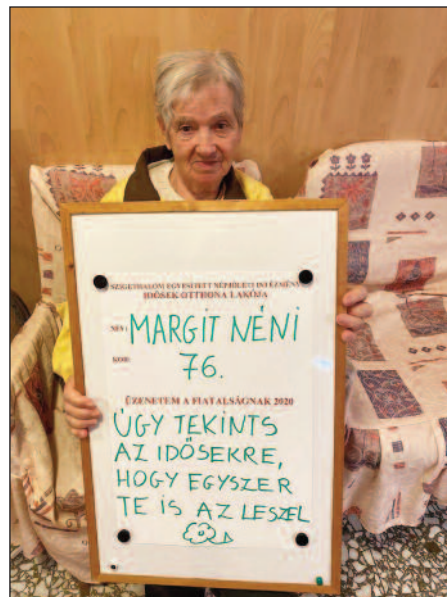 SZIGETHALOM EGYESÍTETT NÉPJÓLÉTI INTÉZMÉNY
IDŐSEK OTTHONA LAKÓJA
NÉV: MARGIT NÉNI
KOR: 76.
ÜZENETEM A FIATALSÁGNAK 2020
ÚGY TEKINTS
AZ IDŐSEKRE,
HOGY EGYSZER
TE IS AZ LESZEL